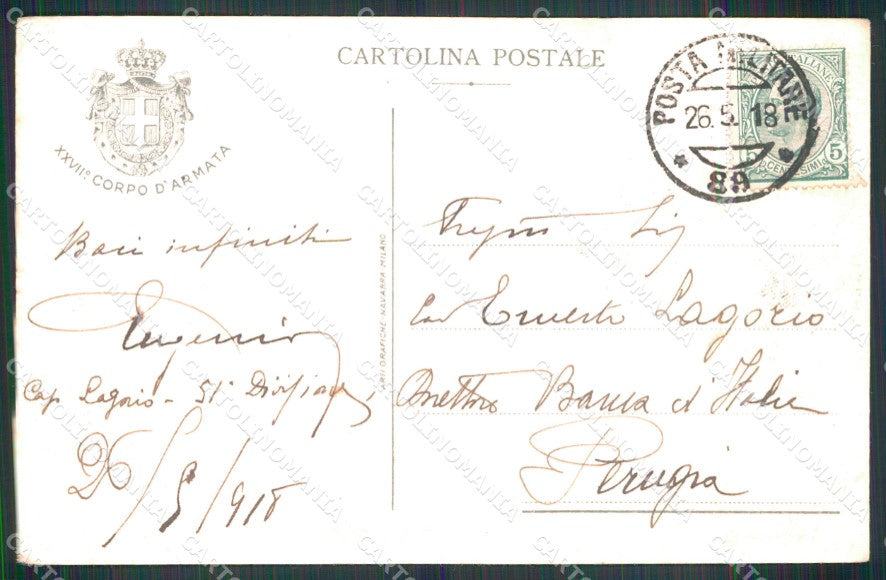 CARTOLINA POSTALE
XXVII° CORPO D'ARMATA
POSTA MILITARE
26.5.18
89
ITALIANE
5 CENTESIMI 5
Baci infiniti
Eugenio
Cap Lagorio - 51ª Divisione
26/5/918
ARTI GRAFICHE NAVARRA - MILANO
Cav Ernesto Lagorio
Banca d'Italia
Perugia
CARTOLINOMANIA